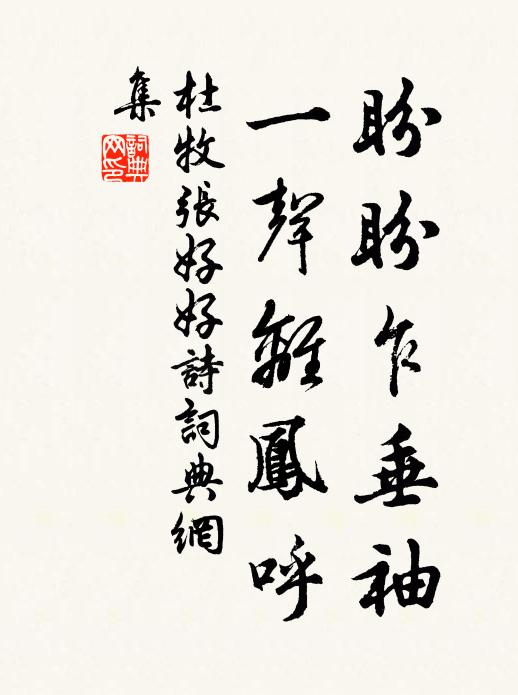 盼盼乍垂袖
一聲雛鳳呼
杜牧張好好詩詞典網
集
詞典網印